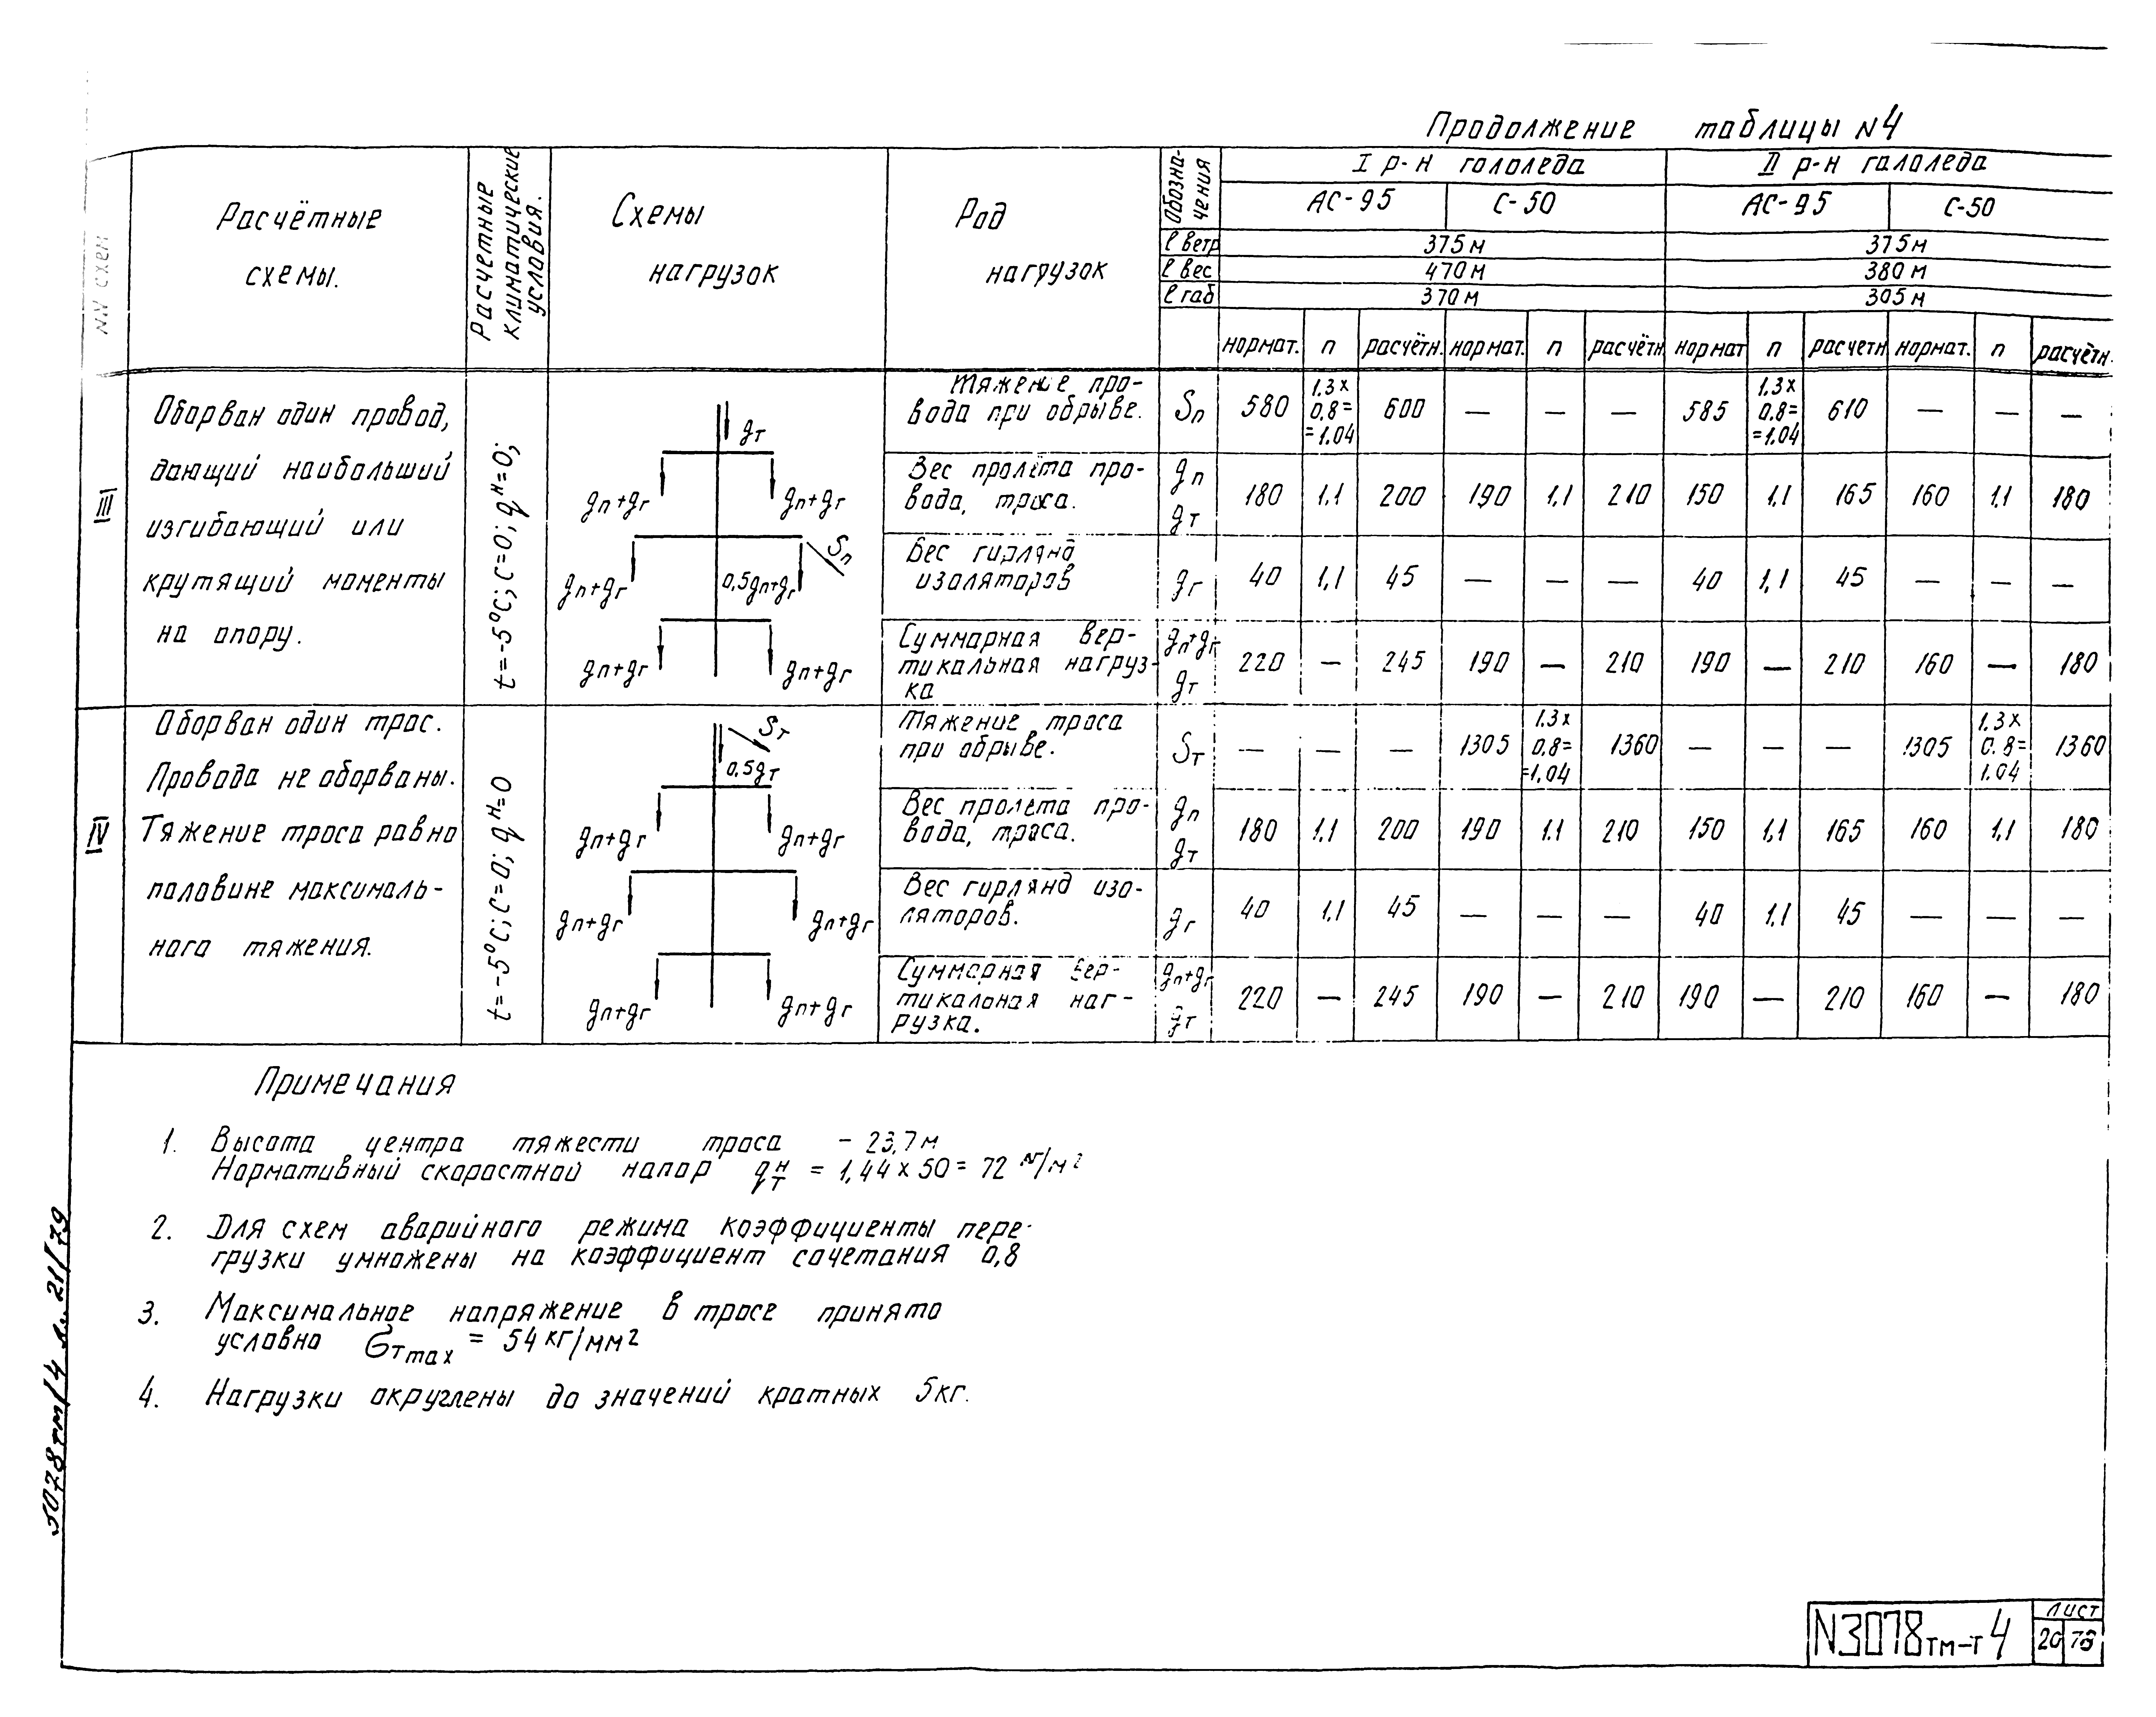 Продолжение таблицы N4
NN схем
Расчётные
схемы.
Расчетные
климатические
условия.
Схемы
нагрузок
Род
нагрузок
Обозна-
чения
I р-н гололеда
II р-н гололеда
АС-95 С-50 АС-95 С-50
l ветр 375м 375м
l вес 470м 380м
l габ 370м 305м
нормат. n расчётн. нормат. n расчётн нормат n расчетн нормат. n расчётн.
III
Оборван один провод,
дающий наибольший
изгибающий или
крутящий моменты
на опору.
t=-5°C; C=0; qᴴ=0;
gт
gп+gг gп+gг
Sп
gп+gг 0,5gп+gг
gп+gг gп+gг
Тяжение про-
вода при обрыве.
Sп 580 1,3х 0,8= =1.04 600 — — — 585 1,3х 0,8= =1,04 610 — — —
Вес пролета про-
вода, троса.
gп
gт
180 1.1 200 190 1,1 210 150 1,1 165 160 1.1 180
Вес гирлянд
изоляторов
gг 40 1,1 45 — — — 40 1,1 45 — — —
Суммарная вер-
тикальная нагруз-
ка
gп+gг
gт
220 — 245 190 — 210 190 — 210 160 — 180
IV
Оборван один трос.
Провода не оборваны.
Тяжение троса равно
половине максималь-
ного тяжения.
t=-5°C; C=0; qᴴ=0
Sт
0,5gт
gп+gг gп+gг
gп+gг gп+gг
gп+gг gп+gг
Тяжение троса
при обрыве.
Sт — — — 1305 1.3х 0,8= =1,04 1360 — — — 1305 1.3х 0.8= 1.04 1360
Вес пролета про-
вода, троса.
gп
gт
180 1.1 200 190 1.1 210 150 1,1 165 160 1,1 180
Вес гирлянд изо-
ляторов.
gг 40 1,1 45 — — — 40 1,1 45 — — —
Суммарная вер-
тикальная наг-
рузка.
gп+gг
gт
220 — 245 190 — 210 190 — 210 160 — 180
Примечания
1. Высота центра тяжести троса - 23,7м
Нормативный скоростной напор qᴴт = 1,44 х 50 = 72 кг/м²
2. Для схем аварийного режима коэффициенты пере-
грузки умножены на коэффициент сочетания 0,8
3. Максимальное напряжение в тросе принято
условно σт max = 54 кг/мм²
4. Нагрузки округлены до значений кратных 5кг.
3078тм/4 л. 21/79
N3078тм-т4
Лист
20